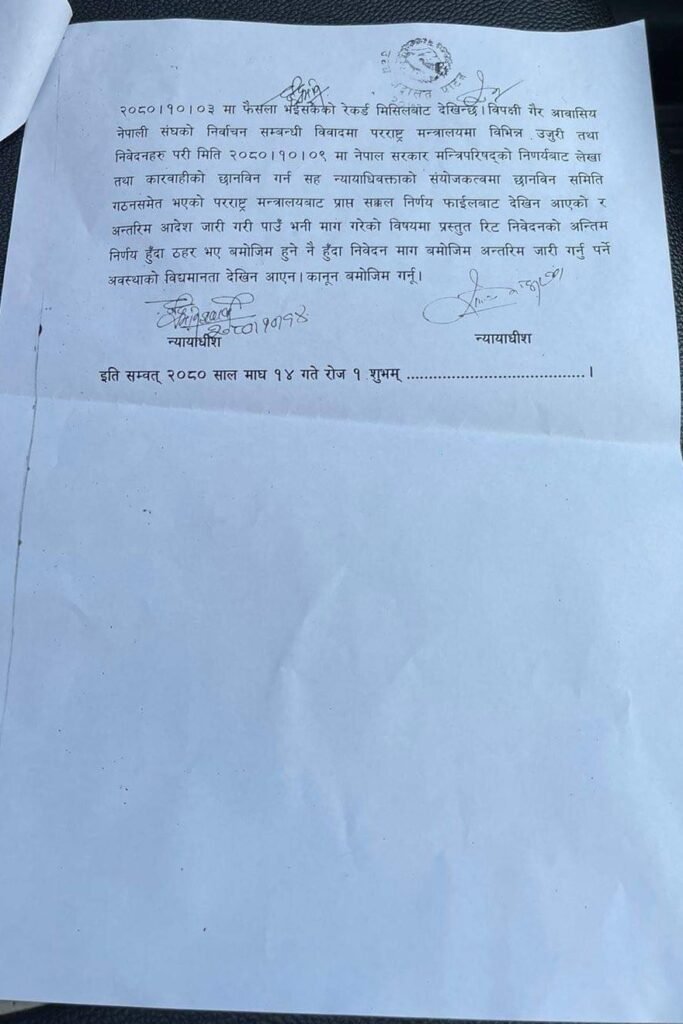 अदालत पाटन
२०८०।१०।०३ मा फैसला भईसकेको रेकर्ड मिसिलबाट देखिन्छ। विपक्षी गैर आवासिय
नेपाली संघको निर्वाचन सम्बन्धी विवादमा परराष्ट्र मन्त्रालयमा विभिन्न उजुरी तथा
निवेदनहरु परी मिति २०८०।१०।०९ मा नेपाल सरकार मन्त्रिपरिषद्को निर्णयबाट लेखा
तथा कारवाहीको छानविन गर्न सह न्यायाधिवक्ताको संयोजकत्वमा छानविन समिति
गठनसमेत भएको परराष्ट्र मन्त्रालयबाट प्राप्त सक्कल निर्णय फाईलबाट देखिन आएको र
अन्तरिम आदेश जारी गरी पाउँ भनी माग गरेको विषयमा प्रस्तुत रिट निवेदनको अन्तिम
निर्णय हुँदा ठहर भए बमोजिम हुने नै हुँदा निवेदन माग बमोजिम अन्तरिम जारी गर्नु पर्ने
अवस्थाको विद्यमानता देखिन आएन। कानून बमोजिम गर्नू।
२०८०।१०।१४
न्यायाधीश न्यायाधीश
इति सम्वत् २०८० साल माघ १४ गते रोज १ शुभम् ......................................।